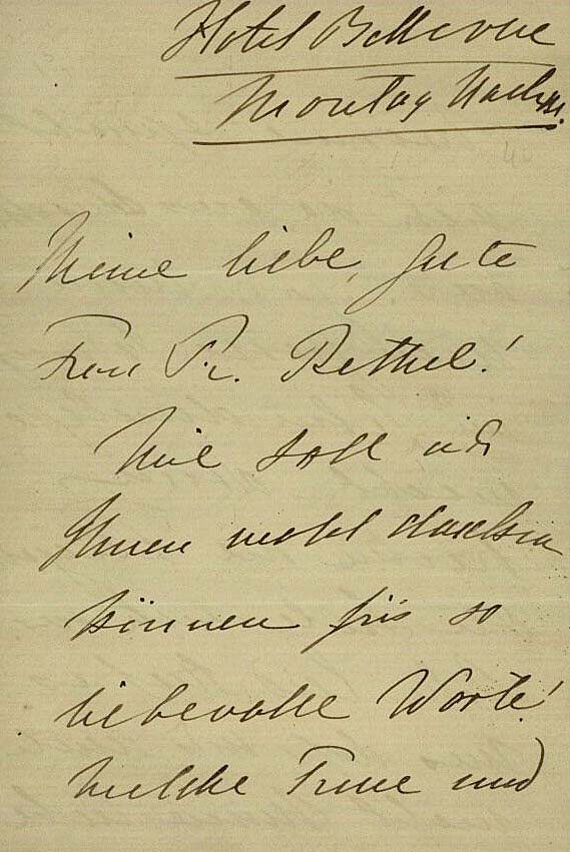 Hotel Bellevue
Montag Nachm.
Meine liebe, gute
Frau Dr. Bethel!
Wie soll ich
Ihnen wohl danken
können für so
liebevolle Worte!
Welche Treue und